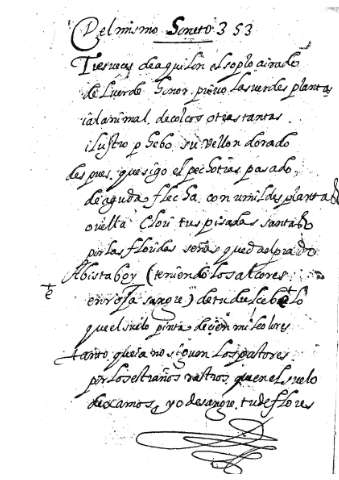 Del mismo Soneto 353
Tres veçes de aquilon el soplo airado
de l verde honor priuo las verdes plantas
i al animal de colcos otras tantas
ilustro phebo su vellon dorado
despues que sigo el pecho tras pasado
de aguda flecha con umildes plantas
o vella Clori tus pisadas santas
por las floridas señas que da el prado
A bista boy (teniendo los alcores
en roja sangre) de tu dulce belo
que el suelo pinta de cien mil colores
tanto que ia nos siguen los pastores
por los estraños rastros que en el suelo
dexamos, yo de sangre, tu de flores